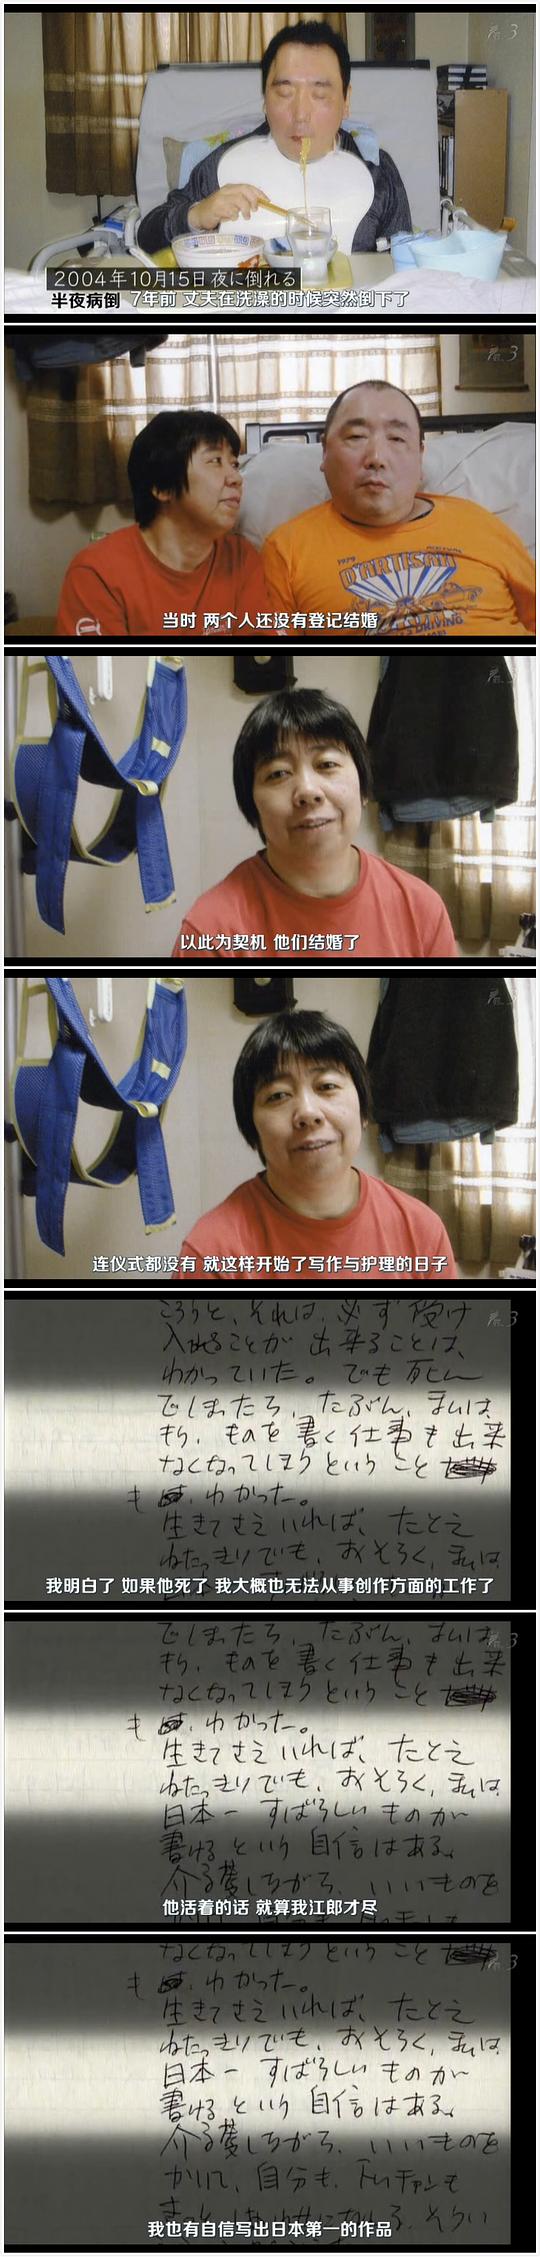 3
2004年10月15日 夜に倒れる
半夜病倒 7年前 丈夫在洗澡的时候突然倒下了
3
1979
D'ARTISAN
DRIVING
当时 两个人还没有登记结婚
以此为契机 他们结婚了
连仪式都没有 就这样开始了写作与护理的日子
3
ころうと、それは、必ず受け
入れることが出来ることは、
わかっていた。でも死ん
でしまったら、たぶん、まいは
もう、ものを書く仕事も出来
なくなってしまうということ
も わかった。
生きてさえいれば、たとえ
ねたっきりでも、おそらく、まいは
我明白了 如果他死了 我大概也无法从事创作方面的工作了
3
でしまったら、たぶん、まいは
もう、ものを書く仕事も出来
なくなってしまうということ
も わかった。
生きてさえいれば、たとえ
ねたっきりでも、おそらく、まいは
日本一 すばらしいものが
書けるという自信はある。
介護しながら、いいものを
他活着的话 就算我江郎才尽
3
なくなってしまうということ
も わかった。
生きてさえいれば、たとえ
ねたっきりでも、おそらく、まいは
日本一 すばらしいものが
書けるという自信はある。
介護しながら、いいものを
かいて、自分も、トムチャンも
我也有自信写出日本第一的作品